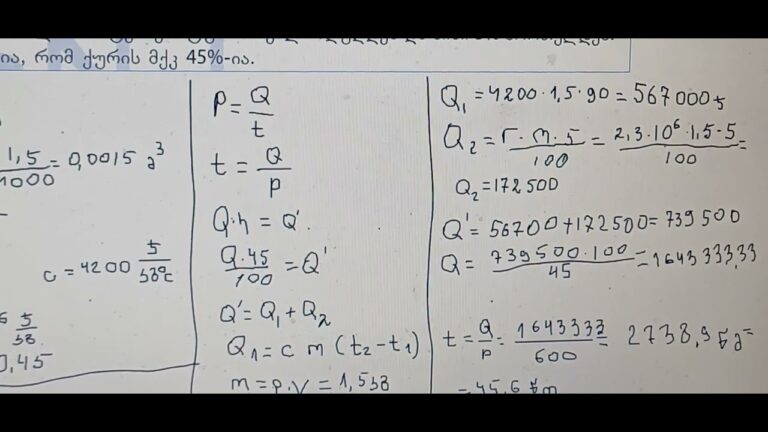 ია, რომ ქურის მქკ 45%-ია.
1,5/1000 = 0,0015 მ³
c = 4200 ჯ/კგ°C
ჯ/კგ
0,45
P = Q/t
t = Q/P
Q·η = Q'
Q·45/100 = Q'
Q' = Q₁ + Q₂
Q₁ = c m (t₂ - t₁)
m = ρ·V = 1,5კგ
Q₁ = 4200·1,5·90 = 567000 ჯ
Q₂ = r·m·5/100 = 2,3·10⁶·1,5·5/100 =
Q₂ = 172500
Q' = 56700 + 172500 = 739500
Q = 739500·100/45 = 1643333,33
t = Q/P = 1643333/600 = 2738,9 წმ =
= 45,6 წთ